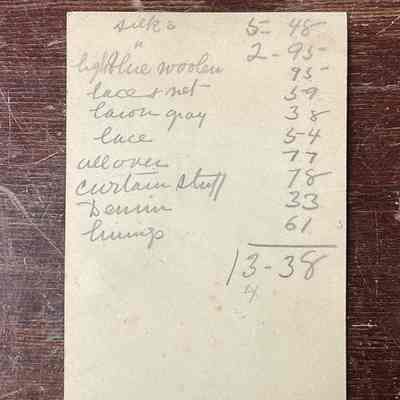 silks 5-48
" 2-95
light blue woolen 95
lace & net 59
lawn gray 38
lace 54
all over 77
curtain stuff 78
Denim 33
linings 61
13-38
4